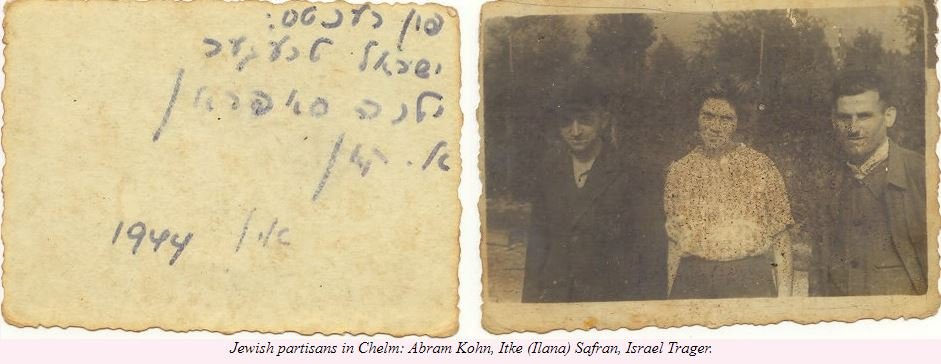 פון רעכטס:
ישראל טרעגער
ילנה סאפראן
א. קאן
אין 1944
Jewish partisans in Chelm: Abram Kohn, Itke (Ilana) Safran, Israel Trager.